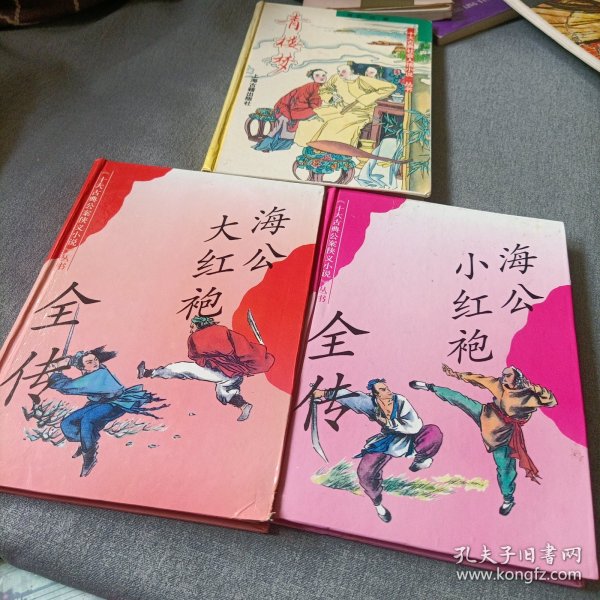 青楼梦
上海古籍出版社
《十大古典公案侠义小说》丛书
海公
大红袍
全传
《十大古典公案侠义小说》丛书
海公
小红袍
全传
孔夫子旧书网
www.kongfz.com